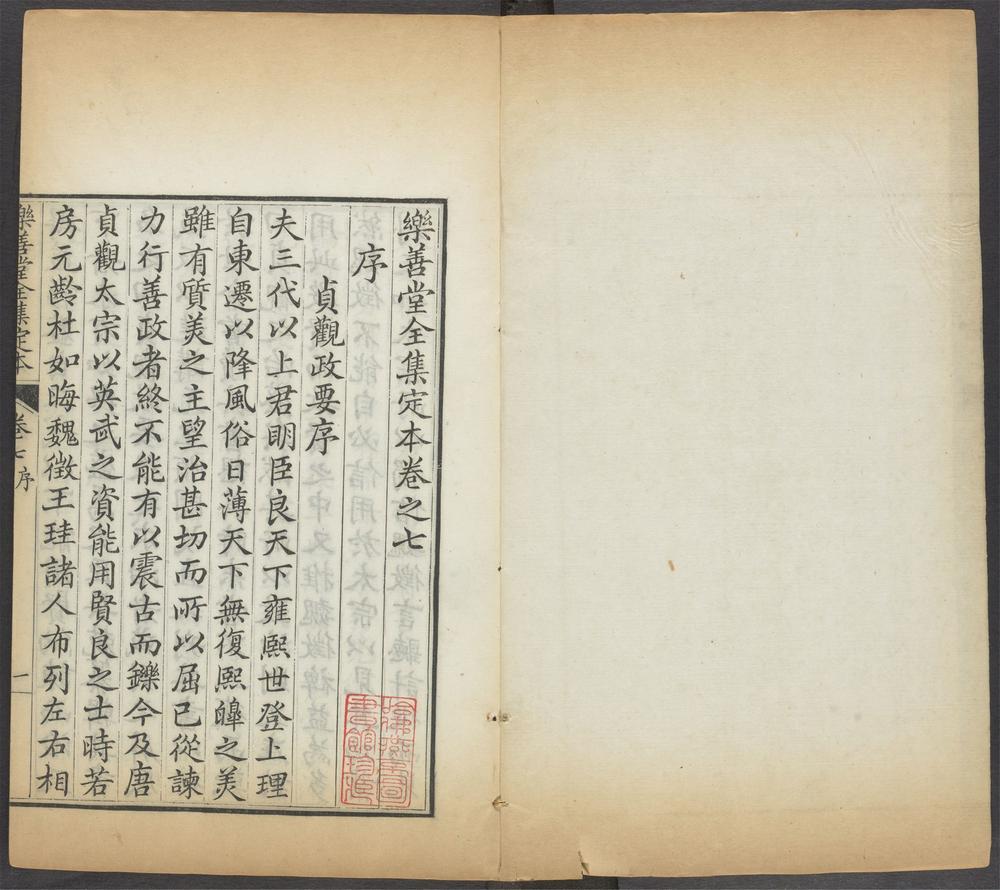 樂善堂全集定本卷之七
序
貞觀政要序
夫三代以上君明臣良天下雍熙世登上理
自東遷以降風俗日薄天下無復熙皞之美
雖有質美之主望治甚切而所以屈己從諫
力行善政者終不能有以震古而鑠今及唐
貞觀太宗以英武之資能用賢良之士時若
房元齡杜如晦魏徵王珪諸人布列左右相
樂善堂全集定本
卷七 序
一